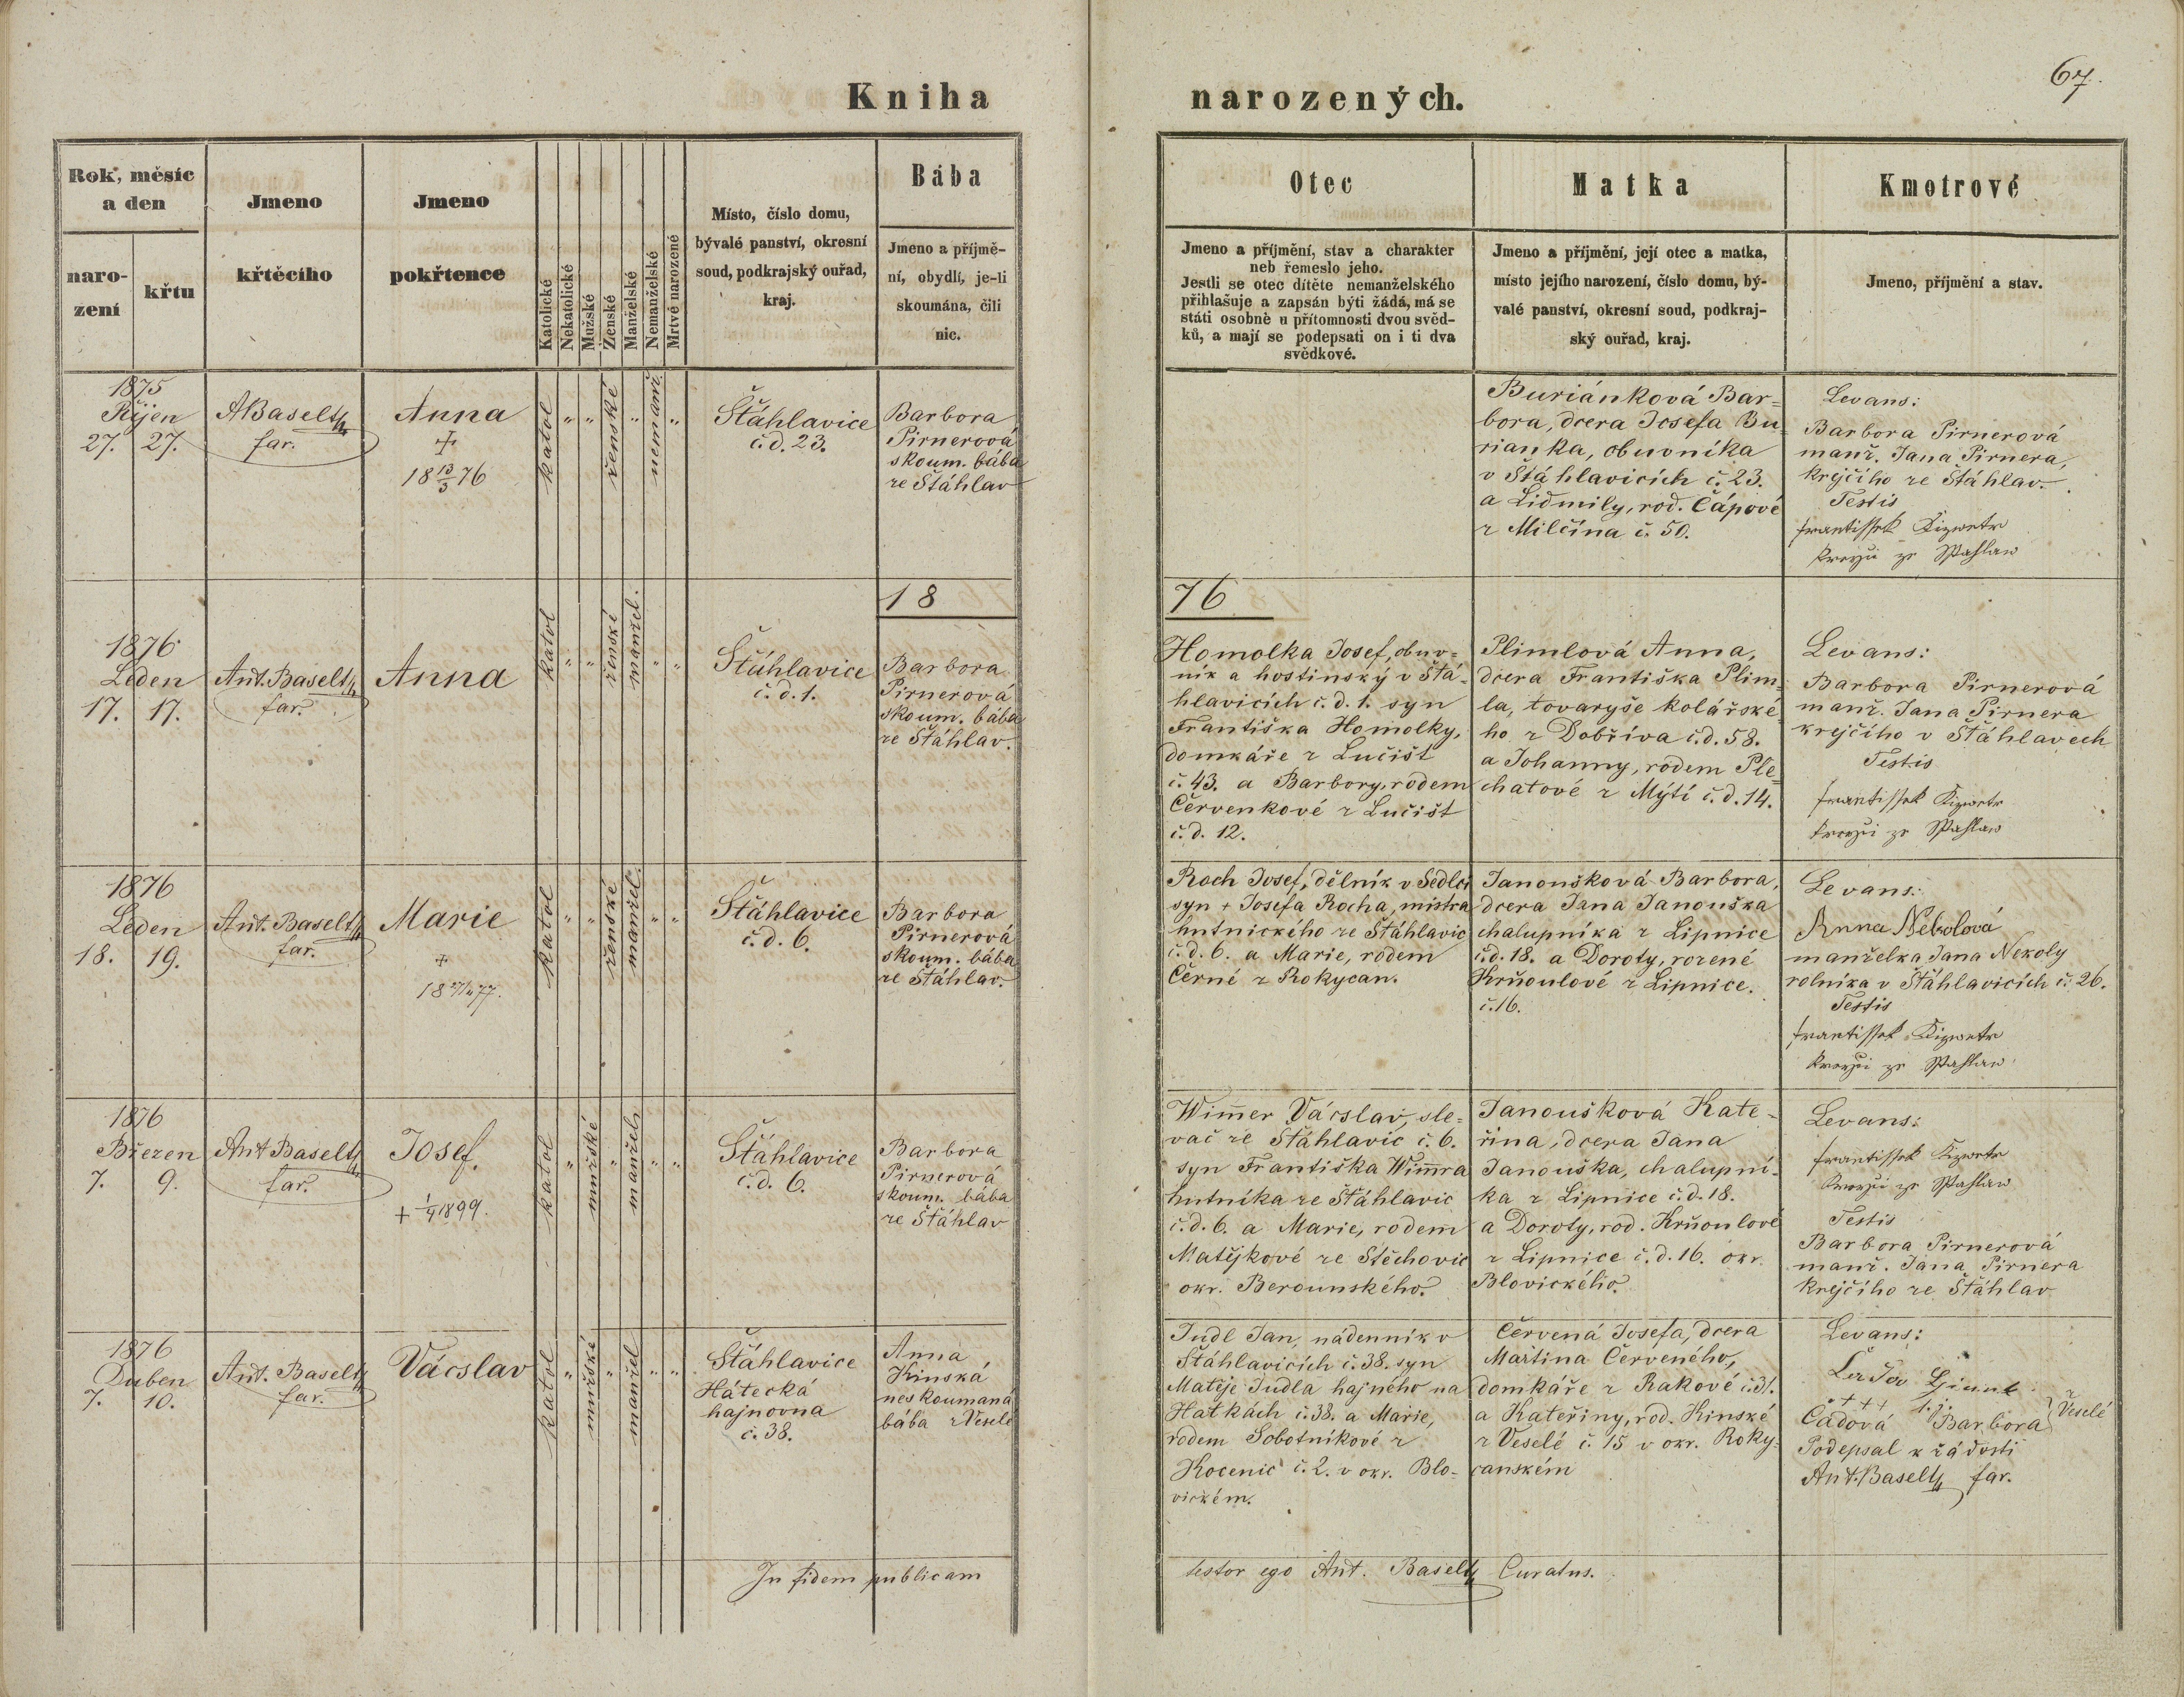 67.
Kniha
narozených.
Rok, měsíc
a den
naro-
zení
křtu
Jmeno
křtěcího
Jmeno
pokřtence
Katolické
Nekatolické
Mužské
Ženské
Manželské
Nemanželské
Mrtvě narozené
Místo, číslo domu,
bývalé panství, okresní
soud, podkrajský ouřad,
kraj.
Bába
Jmeno a příjmě-
ní, obydlí, je-li
skoumána, čili
nic.
Otec
Jmeno a příjmění, stav a charakter
neb řemeslo jeho.
Jestli se otec dítěte nemanželského
přihlašuje a zapsán býti žádá, má se
státi osobně u přítomnosti dvou svěd-
ků, a mají se podepsati on i ti dva
svědkové.
Matka
Jmeno a příjmění, její otec a matka,
místo jejího narození, číslo domu, bý-
valé panství, okresní soud, podkraj-
ský ouřad, kraj.
Kmotrové
Jmeno, příjmění a stav.
1875
Říjen
27. 27.
ABaselt
far.
Anna
+
18 13/3 76
katol
" "
ženské
"
nemanž.
"
Štáhlavice
č.d. 23.
Barbora
Pirnerová
skoum. bába
ze Štáhlav
Buriánková Bar=
bora, dcera Josefa Bu
rianka, obuvníka
v Štáhlavicích č. 23.
a Lidmily, rod. Čápové
z Milčína č. 50.
Levans:
Barbora Pirnerová
manž. Jana Pirnera,
krejčího ze Štáhlav.
Testis
Frantissek Kizwetr
ze Sstahlaw
18
76
1876
Leden
17. 17.
Ant. Baselt
far.
Anna
katol
" "
ženské
manžel.
" "
Štáhlavice
č.d. 1.
Barbora
Pirnerová
skoum. bába
ze Štáhlav.
Homolka Josef, obuv=
ník a hostinský v Štá-
hlavicích č.d. 1. syn
Františka Homolky,
domkáře z Lučišt
č. 43. a Barbory, rodem
Červenkové z Lučišt
č.d. 12.
Plimlová Anna,
dcera Františka Plim=
la, tovaryše kolářské=
ho z Dobříva č.d. 58.
a Johanny, rodem Ple=
chatové z Mýtí č.d. 14.
Levans:
Barbora Pirnerová
manž. Jana Pirnera
krejčího v Štáhlavech
Testis
Frantissek Kizwetr
ze Sstahlaw
1876
Leden
18. 19.
Ant. Baselt
far.
Marie
+
katol
" "
ženské
manžel.
" "
Štáhlavice
č.d. 6.
Barbora
Pirnerová
skoum. bába
ze Štáhlav.
Roch Josef, dělník v Sedlci
syn + Josefa Rocha, mistra
hutnického ze Štáhlavic
č.d. 6. a Marie, rodem
Černé z Rokycan.
Janoušková Barbora,
dcera Jana Janouška
chalupníka z Lipnice
č.d. 18. a Doroty, rozené
Krňoulové z Lipnice.
č. 16.
Levans:
Anna Nekolová
manželka Jana Nekoly
rolníka v Štáhlavicích č. 26.
Testis
Frantissek Kizwetr
ze Sstahlaw
1876
Březen
7. 9.
Ant Baselt
far.
Josef.
+ 1/9 1899.
katol
"
mužské
"
manžels
" "
Štáhlavice
č.d. 6.
Barbora
Pirnerová
skoum. bába
ze Štáhlav
Wim̄er Vácslav, sle-
vač ze Štáhlavic č. 6.
syn Františka Wim̄ra
hutníka ze Štáhlavic
č.d. 6. a Marie, rodem
Matějkové ze Stěchovic
okr. Berounského.
Janoušková Kate-
řina, dcera Jana
Janouška, chalupní-
ka z Lipnice č.d. 18.
a Doroty, rod. Krňoulové
z Lipnice č.d. 16. okr.
Blovického.
Levans:
Frantissek Kizwetr
ze Sstahlaw
Testis
Barbora Pirnerová
manž. Jana Pirnera
krejčího ze Štáhlav
1876
Duben
7. 10.
Ant. Baselt
far.
Vácslav
katol
"
mužské
"
manžel
" "
Štáhlavice
Hátecká
hajnovna
č. 38.
Anna
Kinská
neskoumaná
bába z Veselé
Judl Jan, nádenník v
Štáhlavicích č. 38. syn
Matěje Judla hajného na
Hatkách č. 38. a Marie,
rodem Sobotníkové z
Kocenic č. 2. v okr. Blo-
vickém.
Červená Josefa, dcera
Martina Červeného,
domkáře z Rakové č. 31.
a Kateřiny, rod. Kinské
z Veselé č. 15 v okr. Roky-
canském
Levans:
+++ t.j.
Čadová Barbora } Veselé
Podepsal k žádosti
Ant. Baselt far.
In fidem publicam
testor ego Ant. Baselt Curatus.